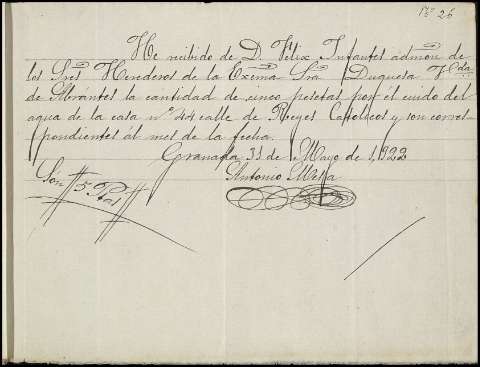 Nº 26
He recibido de D. Félix Infantes admón de
los Sres Herederos de la Exema Sra Duquesa V.da
de Abrántes la cantidad de cinco pesetas por el cuido del
agua de la casa nº 44 calle de Reyes Católicos y son corres-
pondientes al mes de la fecha.
Granada 31 de Mayo de 1,922
Antonio
Són # 5 Ptas #